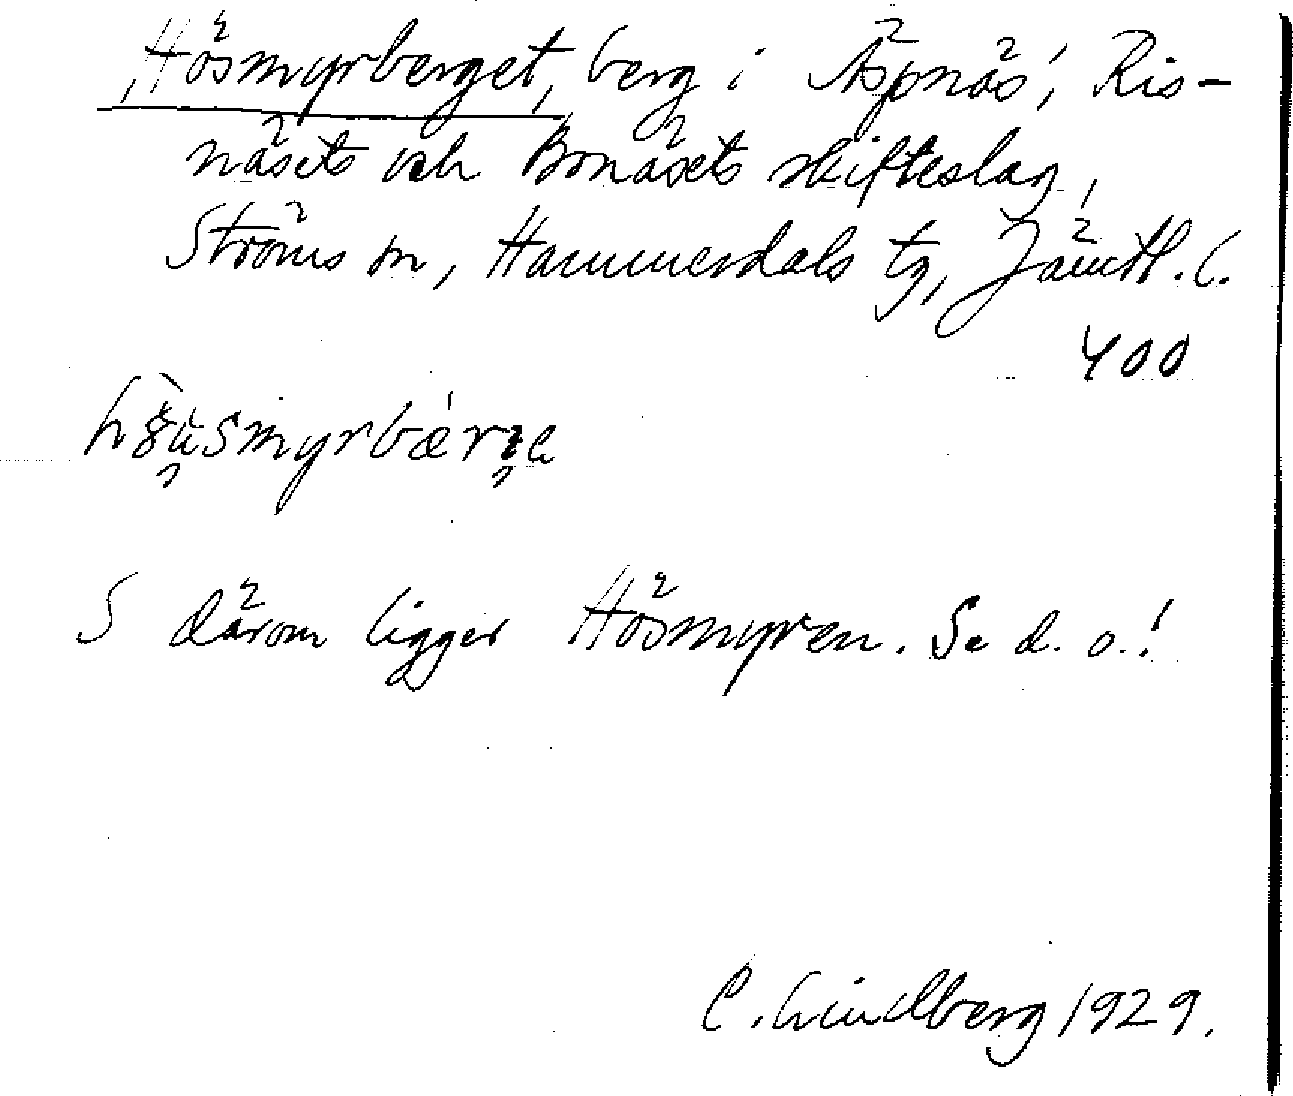 Hösmyrberget, berg i Äspnäs', Ris-
näsets och Bonäsets skifteslag,
Ströms sn, Hammerdals tg, Jämtl. l.
400
S därom ligger Hösmyren. Se d. o.!
C. Lindberg 1929.